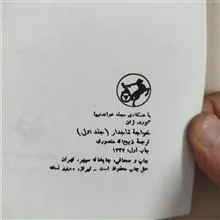 با همکاری مجله خواندنیها
گوره، ژان
خواجهٔ تاجدار (جلد اول)
ترجمهٔ ذبیح‌اله منصوری
چاپ اول: ۱۳۴۷
چاپ و صحافی: چاپخانه سپهر، تهران
حق چاپ محفوظ است. - تیراژ: نسخه